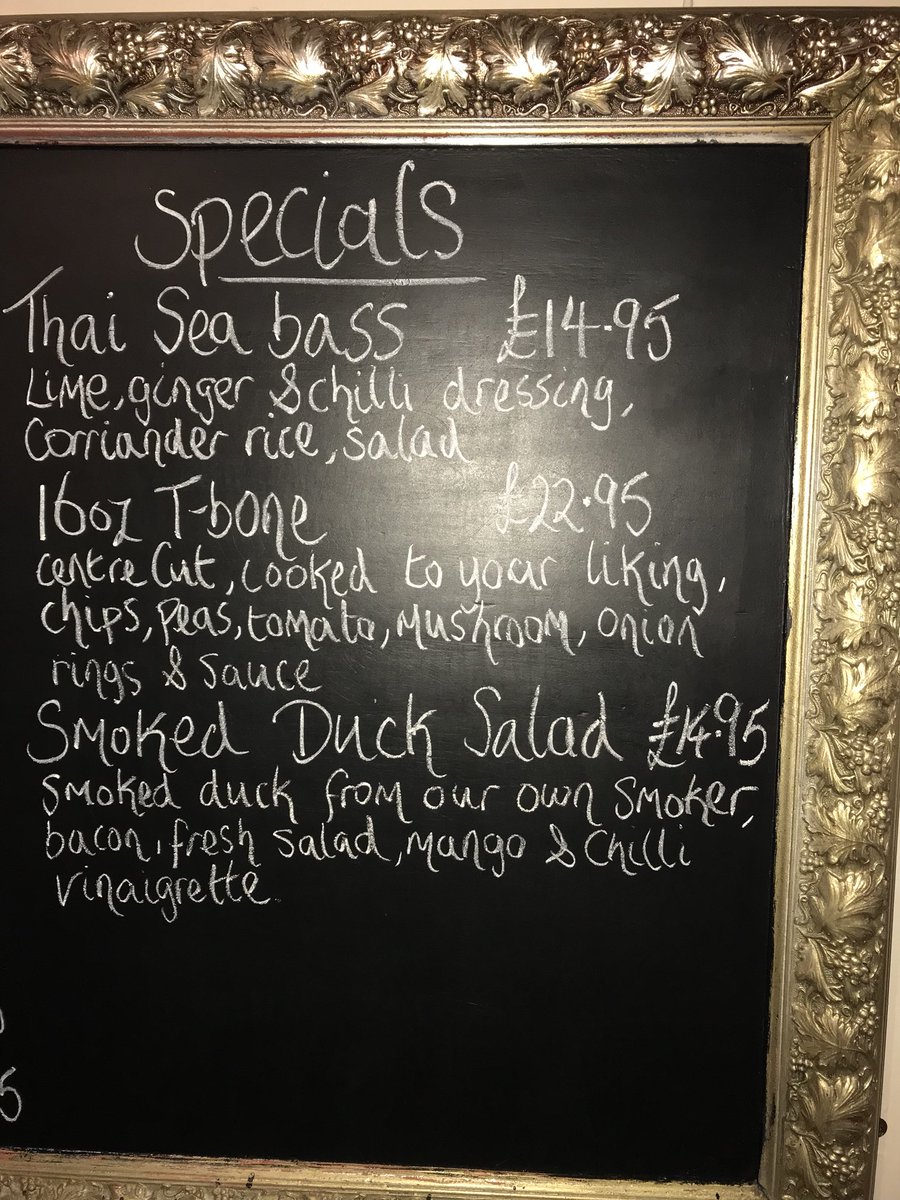 Specials
Thai Sea bass £14.95
Lime, ginger & chilli dressing,
Corriander rice, salad
16oz T-bone £22.95
centre Cut, cooked to your liking,
chips, peas, tomato, mushroom, onion
rings & sauce
Smoked Duck Salad £14.95
smoked duck from our own smoker,
bacon, fresh salad, mango & chilli
vinaigrette
5